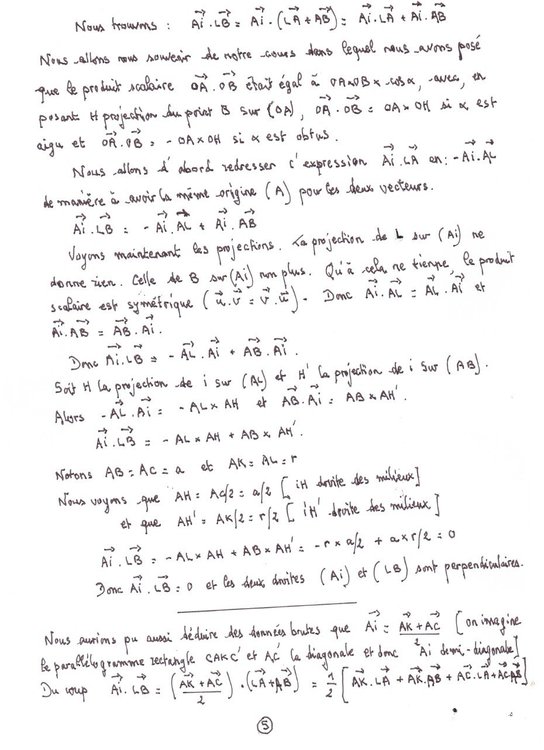 Nous trouvons : Ai.LB = Ai.(LA + AB) = Ai.LA + Ai.AB
Nous allons nous souvenir de notre cours dans lequel nous avons posé
que le produit scalaire OA.OB était égal à OA×OB × cos α, avec, en
posant H projection du point B sur (OA), OA.OB = OA × OH si α est
aigu et OA.OB = - OA×OH si α est obtus.
Nous allons d'abord redresser l'expression Ai.LA en: -Ai.AL
de manière à avoir la même origine (A) pour les deux vecteurs.
Ai.LB = - Ai.AL + Ai.AB
Voyons maintenant les projections. La projection de L sur (Ai) ne
donne rien. Celle de B sur (Ai) non plus. Qu'à cela ne tienne, le produit
scalaire est symétrique (u.v = v.u). Donc Ai.AL = AL.Ai et
Ai.AB = AB.Ai.
Donc Ai.LB = - AL.Ai + AB.Ai.
Soit H la projection de i sur (AL) et H' la projection de i sur (AB).
Alors - AL.Ai = - AL × AH et AB.Ai = AB × AH'.
Ai.LB = - AL × AH + AB × AH'.
Notons AB = AC = a et AK = AL = r
Nous voyons que AH = AC/2 = a/2 [iH droite des milieux]
et que AH' = AK/2 = r/2 [iH' droite des milieux]
Ai.LB = - AL × AH + AB × AH' = - r × a/2 + a × r/2 = 0
Donc Ai.LB = 0 et les deux droites (Ai) et (LB) sont perpendiculaires.
Nous aurions pu aussi déduire des données brutes que Ai = (AK + AC)/2 [on imagine
le parallélogramme rectangle CAKC' et AC' la diagonale et donc Ai demi-diagonale]
Du coup Ai.LB = ((AK + AC)/2).(LA + AB) = 1/2 [AK.LA + AK.AB + AC.LA + AC.AB]
5